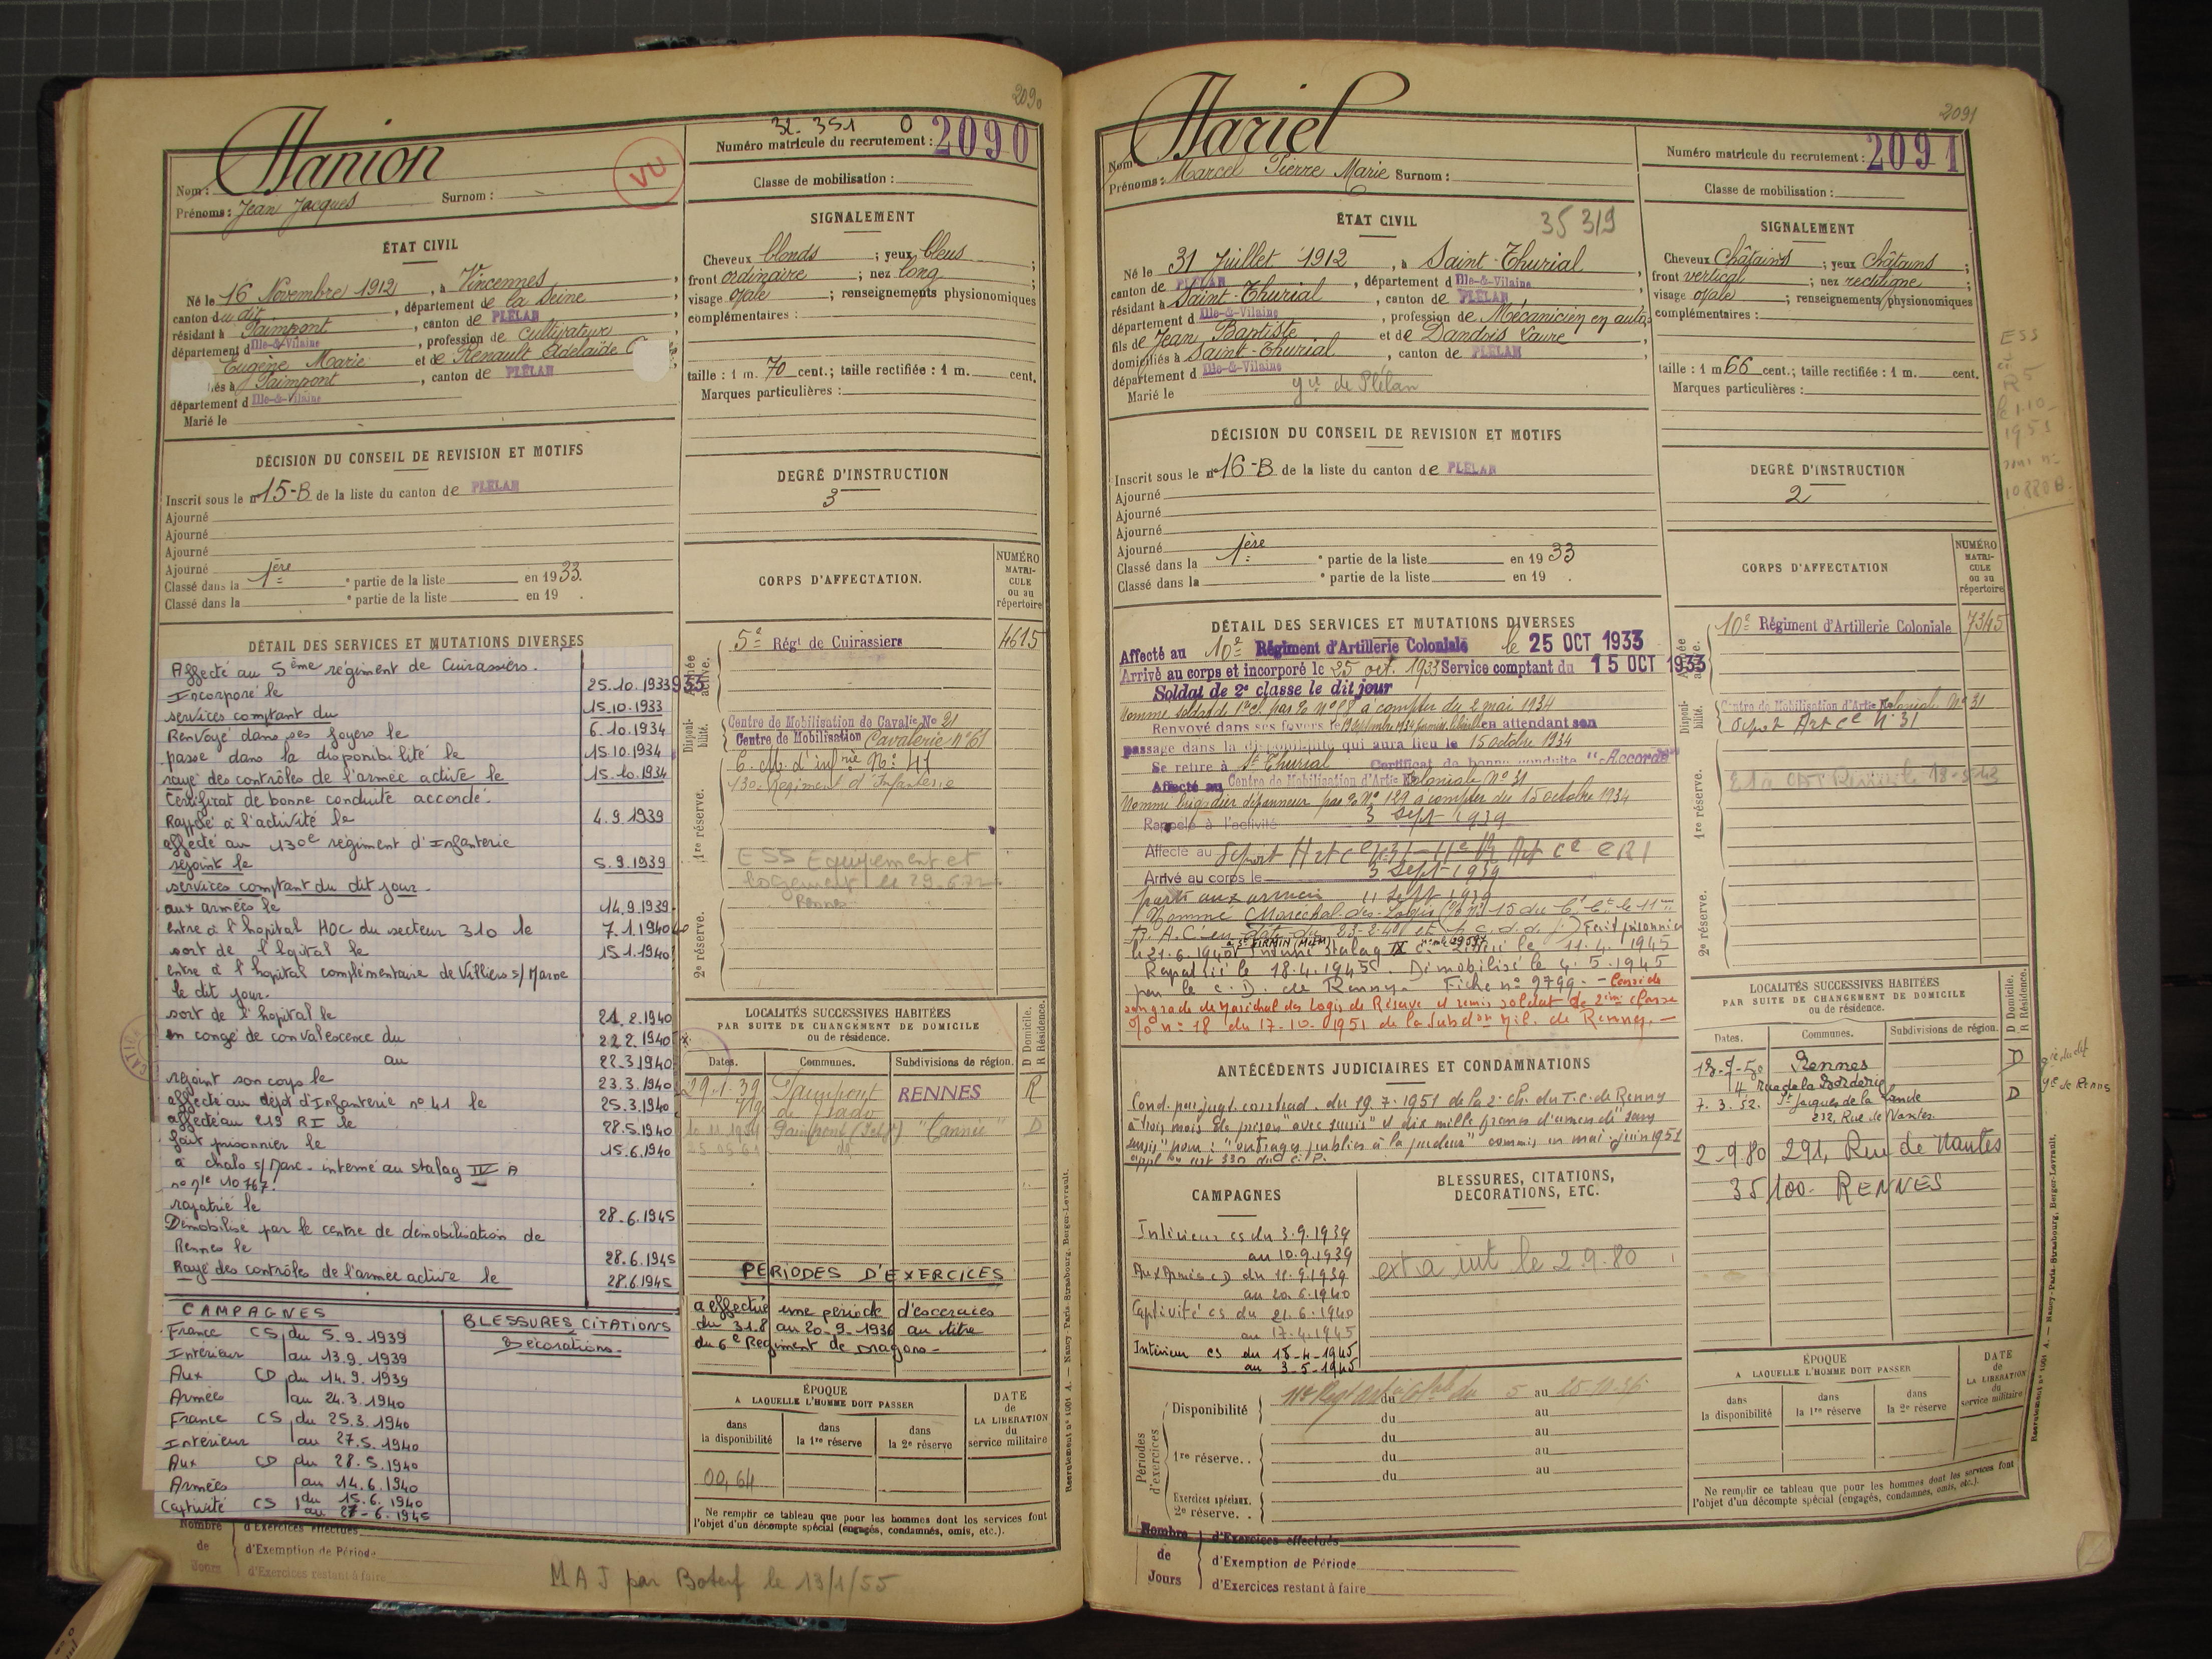 2090
32-351 O
Numéro matricule du recrutement : 2090
Nom : Hanion
VU
Prénoms : Jean Jacques Surnom :
Classe de mobilisation :
ÉTAT CIVIL
Né le 16 Novembre 1912, à Vincennes,
canton dudit, département de la Seine
résidant à Paimpont, canton de PLÉLAN
département d Ille-&-Vilaine, profession de Cultivateur
Eugène Marie et de Renault Adelaïde
és à Paimpont, canton de PLÉLAN
département d Ille-&-Vilaine
Marié le
SIGNALEMENT
Cheveux blonds ; yeux bleus ;
front ordinaire ; nez long ;
visage ovale ; renseignements physionomiques
complémentaires :
taille : 1 m. 70 cent.; taille rectifiée : 1 m. cent.
Marques particulières :
DÉCISION DU CONSEIL DE REVISION ET MOTIFS
Inscrit sous le n° 15-B de la liste du canton de PLÉLAN
Ajourné
Ajourné
Ajourné
Ajourné
Classé dans la 1ère partie de la liste en 1933.
Classé dans la e partie de la liste en 19 .
DEGRÉ D'INSTRUCTION
3
CORPS D'AFFECTATION.
NUMÉRO MATRI-CULE ou au répertoire
DÉTAIL DES SERVICES ET MUTATIONS DIVERSES
Affecté au 5ème régiment de Cuirassiers.
Incorporé le 25.10.1933
services comptant du 15.10.1933
Renvoyé dans ses foyers le 6.10.1934
passé dans la disponibilité le 15.10.1934
rayé des contrôles de l'armée active le 15.10.1934
Certificat de bonne conduite accordé.
Rappelé à l'activité le 4.9.1939
affecté au 130e régiment d'Infanterie
rejoint le 5.9.1939
services comptant du dit jour.
aux armées le 14.9.1939
entre à l'hopital HOC du secteur 310 le 7.1.1940
sort de l'hopital le 15.1.1940
entre à l'hopital complémentaire de Villiers s/ Marne
le dit jour.
sort de l'hopital le 21.2.1940
en congé de convalescence du 22.2.1940
au 22.3.1940
rejoint son corps le 23.3.1940
affecté au dépôt d'Infanterie n° 41 le 25.3.1940
affecté au 219 RI le 28.5.1940
fait prisonnier le 15.6.1940
à chalo s/ Marc - interné au stalag IV A
n° mle 10767.
rapatrié le 28.6.1945
Démobilisé par le centre de démobilisation de
Rennes le 28.6.1945
Rayé des contrôles de l'armée active le 28.6.1945
CAMPAGNES
France CS du 5.9.1939
Intérieur au 13.9.1939
Aux CD du 14.9.1939
Armées au 24.3.1940
France CS du 25.3.1940
Intérieur au 27.5.1940
Aux CD du 28.5.1940
Armées au 14.6.1940
Captivité CS du 15.6.1940
au 27-6.1945
BLESSURES CITATIONS
Décorations.
Nombre de Jours
d'Exercices effectués
d'Exemption de Période
d'Exercices restant à faire
MAJ par Boteuf le 13/1/55
Armée active.
5e Régt de Cuirassiers 4615
Disponibilité.
Centre de Mobilisation de Cavalie No 31
Centre de Mobilisation Cavalerie n°61
1re réserve.
C. M. d'infrie No: 41
130e Régiment d'Infanterie
ESS Equipement et
logement le 29.6.72
Rennes
2e réserve.
LOCALITÉS SUCCESSIVES HABITÉES
PAR SUITE DE CHANGEMENT DE DOMICILE
ou de résidence.
D Domicile. R Résidence.
Dates. Communes. Subdivisions de région.
29.1.39 Paimpont RENNES R
"Cannée" D
PERIODES D'EXERCICES
a effectué une période d'exercices
du 31.8 au 20-9-1936 au titre
du 6e Régiment de Dragons -
ÉPOQUE
A LAQUELLE L'HOMME DOIT PASSER
dans la disponibilité
dans la 1re réserve
dans la 2e réserve
DATE de LA LIBÉRATION du service militaire
Ne remplir ce tableau que pour les hommes dont les services font
l'objet d'un décompte spécial (engagés, condamnés, omis, etc.).
Recrutement n° 1001 A. — Nancy-Paris-Strasbourg, Berger-Levrault.
2091
Nom : Hariel
Numéro matricule du recrutement : 2091
Prénoms : Marcel Pierre Marie Surnom :
Classe de mobilisation :
ÉTAT CIVIL
35 319
Né le 31 Juillet 1912, à Saint-Thurial,
canton de PLÉLAN, département d Ille-&-Vilaine
résidant à Saint-Thurial, canton de PLÉLAN
département d Ille-&-Vilaine, profession de Mécanicien en autos
fils de Jean Baptiste et de Dandois Laure
domiciliés à Saint-Thurial, canton de PLÉLAN
département d Ille-&-Vilaine
Marié le
gie de Plélan
SIGNALEMENT
Cheveux Châtains ; yeux châtains ;
front vertical ; nez rectiligne ;
visage ovale ; renseignements physionomiques
complémentaires :
taille : 1 m 66 cent.; taille rectifiée : 1 m. cent.
Marques particulières :
ESS
R5
1951
10880B.
DÉCISION DU CONSEIL DE REVISION ET MOTIFS
Inscrit sous le n° 16-B de la liste du canton de PLÉLAN
Ajourné
Ajourné
Ajourné
Ajourné
Classé dans la 1ère partie de la liste en 1933
Classé dans la e partie de la liste en 19 .
DEGRÉ D'INSTRUCTION
2
CORPS D'AFFECTATION
NUMÉRO MATRI-CULE ou au répertoire
DÉTAIL DES SERVICES ET MUTATIONS DIVERSES
Affecté au 10e Régiment d'Artillerie Coloniale le 25 OCT 1933
Arrivé au corps et incorporé le 25 oct. 1933 Service comptant du 15 OCT 1933
Soldat de 2e classe le dit jour
Nommé soldat de 1e cl. par O. N° 98 à compter du 2 mai 1934
Renvoyé dans ses foyers le en attendant son
passage dans la disponibilité qui aura lieu le 15 octobre 1934
Se retire à St Thurial Certificat de bonne conduite "Accordé"
Affecté au Centre de Mobilisation d'Artie Coloniale N° 31
Nommé brigadier dépanneur par O. N° 129 à compter du 15 octobre 1934
Rappelé à l'activité 3 Sept 1939
Affecté au
Arrivé au corps le 3 Sept 1939
parti aux armées 11 Sept 1939
Nommé Maréchal-des-Logis
Fait prisonnier
le 21.6.1940 à St FIRMIN (M&M) Interné Stalag IX Libéré le 11.4.1945
Rapatrié le 18.4.1945. Démobilisé le 4.5.1945
par le C. D. de Rennes. Fiche n° 9799. -
son grade de Maréchal des Logis de Réserve et remis soldat de 2ème classe
O/ n° 18 du 17-10-1951 de la Subdon Mil. de Rennes. —
ANTÉCÉDENTS JUDICIAIRES ET CONDAMNATIONS
Cond. par jugt contrad. du 19.7.1951 de la 2e ch. du T.C. de Rennes
à trois mois de prison "avec sursis" et dix mille francs d'amende "sans
sursis" pour : "outrages publics à la pudeur" commis en mai-juin 1951
appl. art 330 du C. P.
CAMPAGNES
Intérieur CS du 3.9.1939
au 10.9.1939
Aux Armées CD du 11.9.1939
au 20.6.1940
Captivité CS du 21.6.1940
au 17.4.1945
Intérieur CS du 18-4-1945
au 3-5-1945
BLESSURES, CITATIONS,
DÉCORATIONS, ETC.
ext a int le 2.9.80
Périodes d'exercices
Disponibilité du 5 au 25.11.36
du au
1re réserve. .
du au
du au
du au
Exercices spéciaux.
2e réserve. .
Nombre de Jours
d'Exercices effectués
d'Exemption de Période
d'Exercices restant à faire
Armée active.
10e Régiment d'Artillerie Coloniale 7345
Disponibilité.
Centre de Mobilisation d'Artie Coloniale N° 31
Dépot Art Ce N° 31
1re réserve.
2e réserve.
LOCALITÉS SUCCESSIVES HABITÉES
PAR SUITE DE CHANGEMENT DE DOMICILE
ou de résidence.
D Domicile. R Résidence.
Dates. Communes. Subdivisions de région.
19-7-50 Rennes D
4 rue de la Borderie
7.3.52. St Jacques de la Lande D
232, Rue de Nantes
gie de Rennes
2-9.80 291, Rue de Nantes
35/100- RENNES
ÉPOQUE
A LAQUELLE L'HOMME DOIT PASSER
dans la disponibilité
dans la 1re réserve
dans la 2e réserve
DATE de LA LIBÉRATION du service militaire
Ne remplir ce tableau que pour les hommes dont les services font
l'objet d'un décompte spécial (engagés, condamnés, omis, etc.).
Recrutement n° 1001 A. — Nancy-Paris-Strasbourg, Berger-Levrault.